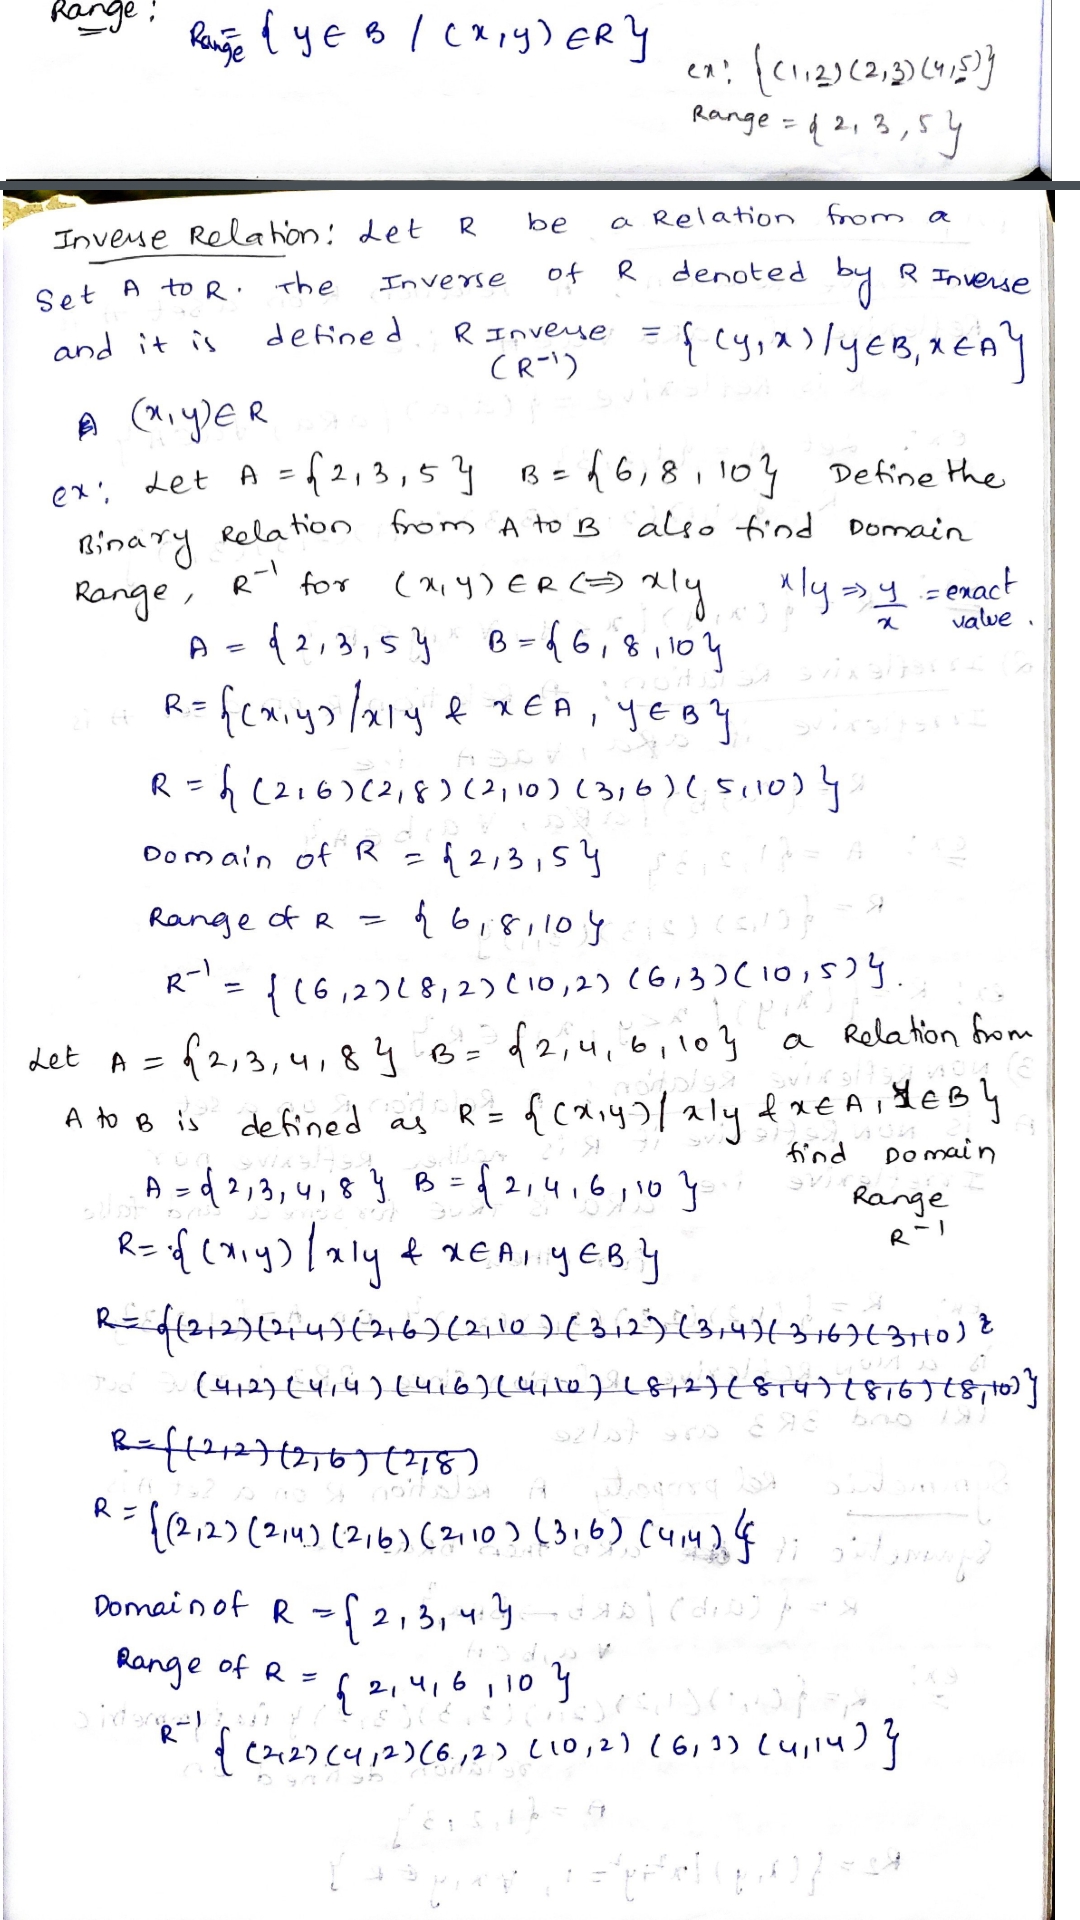 Range:
Range = { y ∈ B / (x,y) ∈ R }
ex: {(1,2)(2,3)(4,5)}
Range = { 2, 3, 5 }
Inverse Relation: Let R be a Relation from a
Set A to R. The Inverse of R denoted by R Inverse
and it is defined R Inverse = { (y,x) / y∈B, x∈A }
(R⁻¹)
(x,y)∈ R
ex: Let A = {2,3,5} B = {6,8,10} Define the
Binary Relation from A to B also find Domain
Range, R⁻¹ for (x,y) ∈ R ⟺ x|y x|y ⇒ y/x = exact value.
A = {2,3,5} B = {6,8,10}
R = {(x,y) / x|y & x ∈ A, y ∈ B}
R = { (2,6)(2,8)(2,10)(3,6)(5,10) }
Domain of R = {2,3,5}
Range of R = {6,8,10}
R⁻¹ = { (6,2)(8,2)(10,2)(6,3)(10,5)}.
Let A = {2,3,4,8} B = {2,4,6,10} a Relation from
A to B is defined as R = {(x,y) / x|y & x∈A, y∈B}
find Domain
A = {2,3,4,8} B = {2,4,6,10} Range
R⁻¹
R = {(x,y) | x|y & x∈A, y∈B}
R = {(2,2)(2,4)(2,6)(2,10)(3,2)(3,4)(3,6)(3,10)
(4,2)(4,4)(4,6)(4,10)(8,2)(8,4)(8,6)(8,10)}
R = {(2,2)(2,6)(2,8)
R = {(2,2)(2,4)(2,6)(2,10)(3,6)(4,4)}
Domain of R = {2,3,4}
Range of R = {2,4,6,10}
R⁻¹ { (2,2)(4,2)(6,2)(10,2)(6,3)(4,14) }